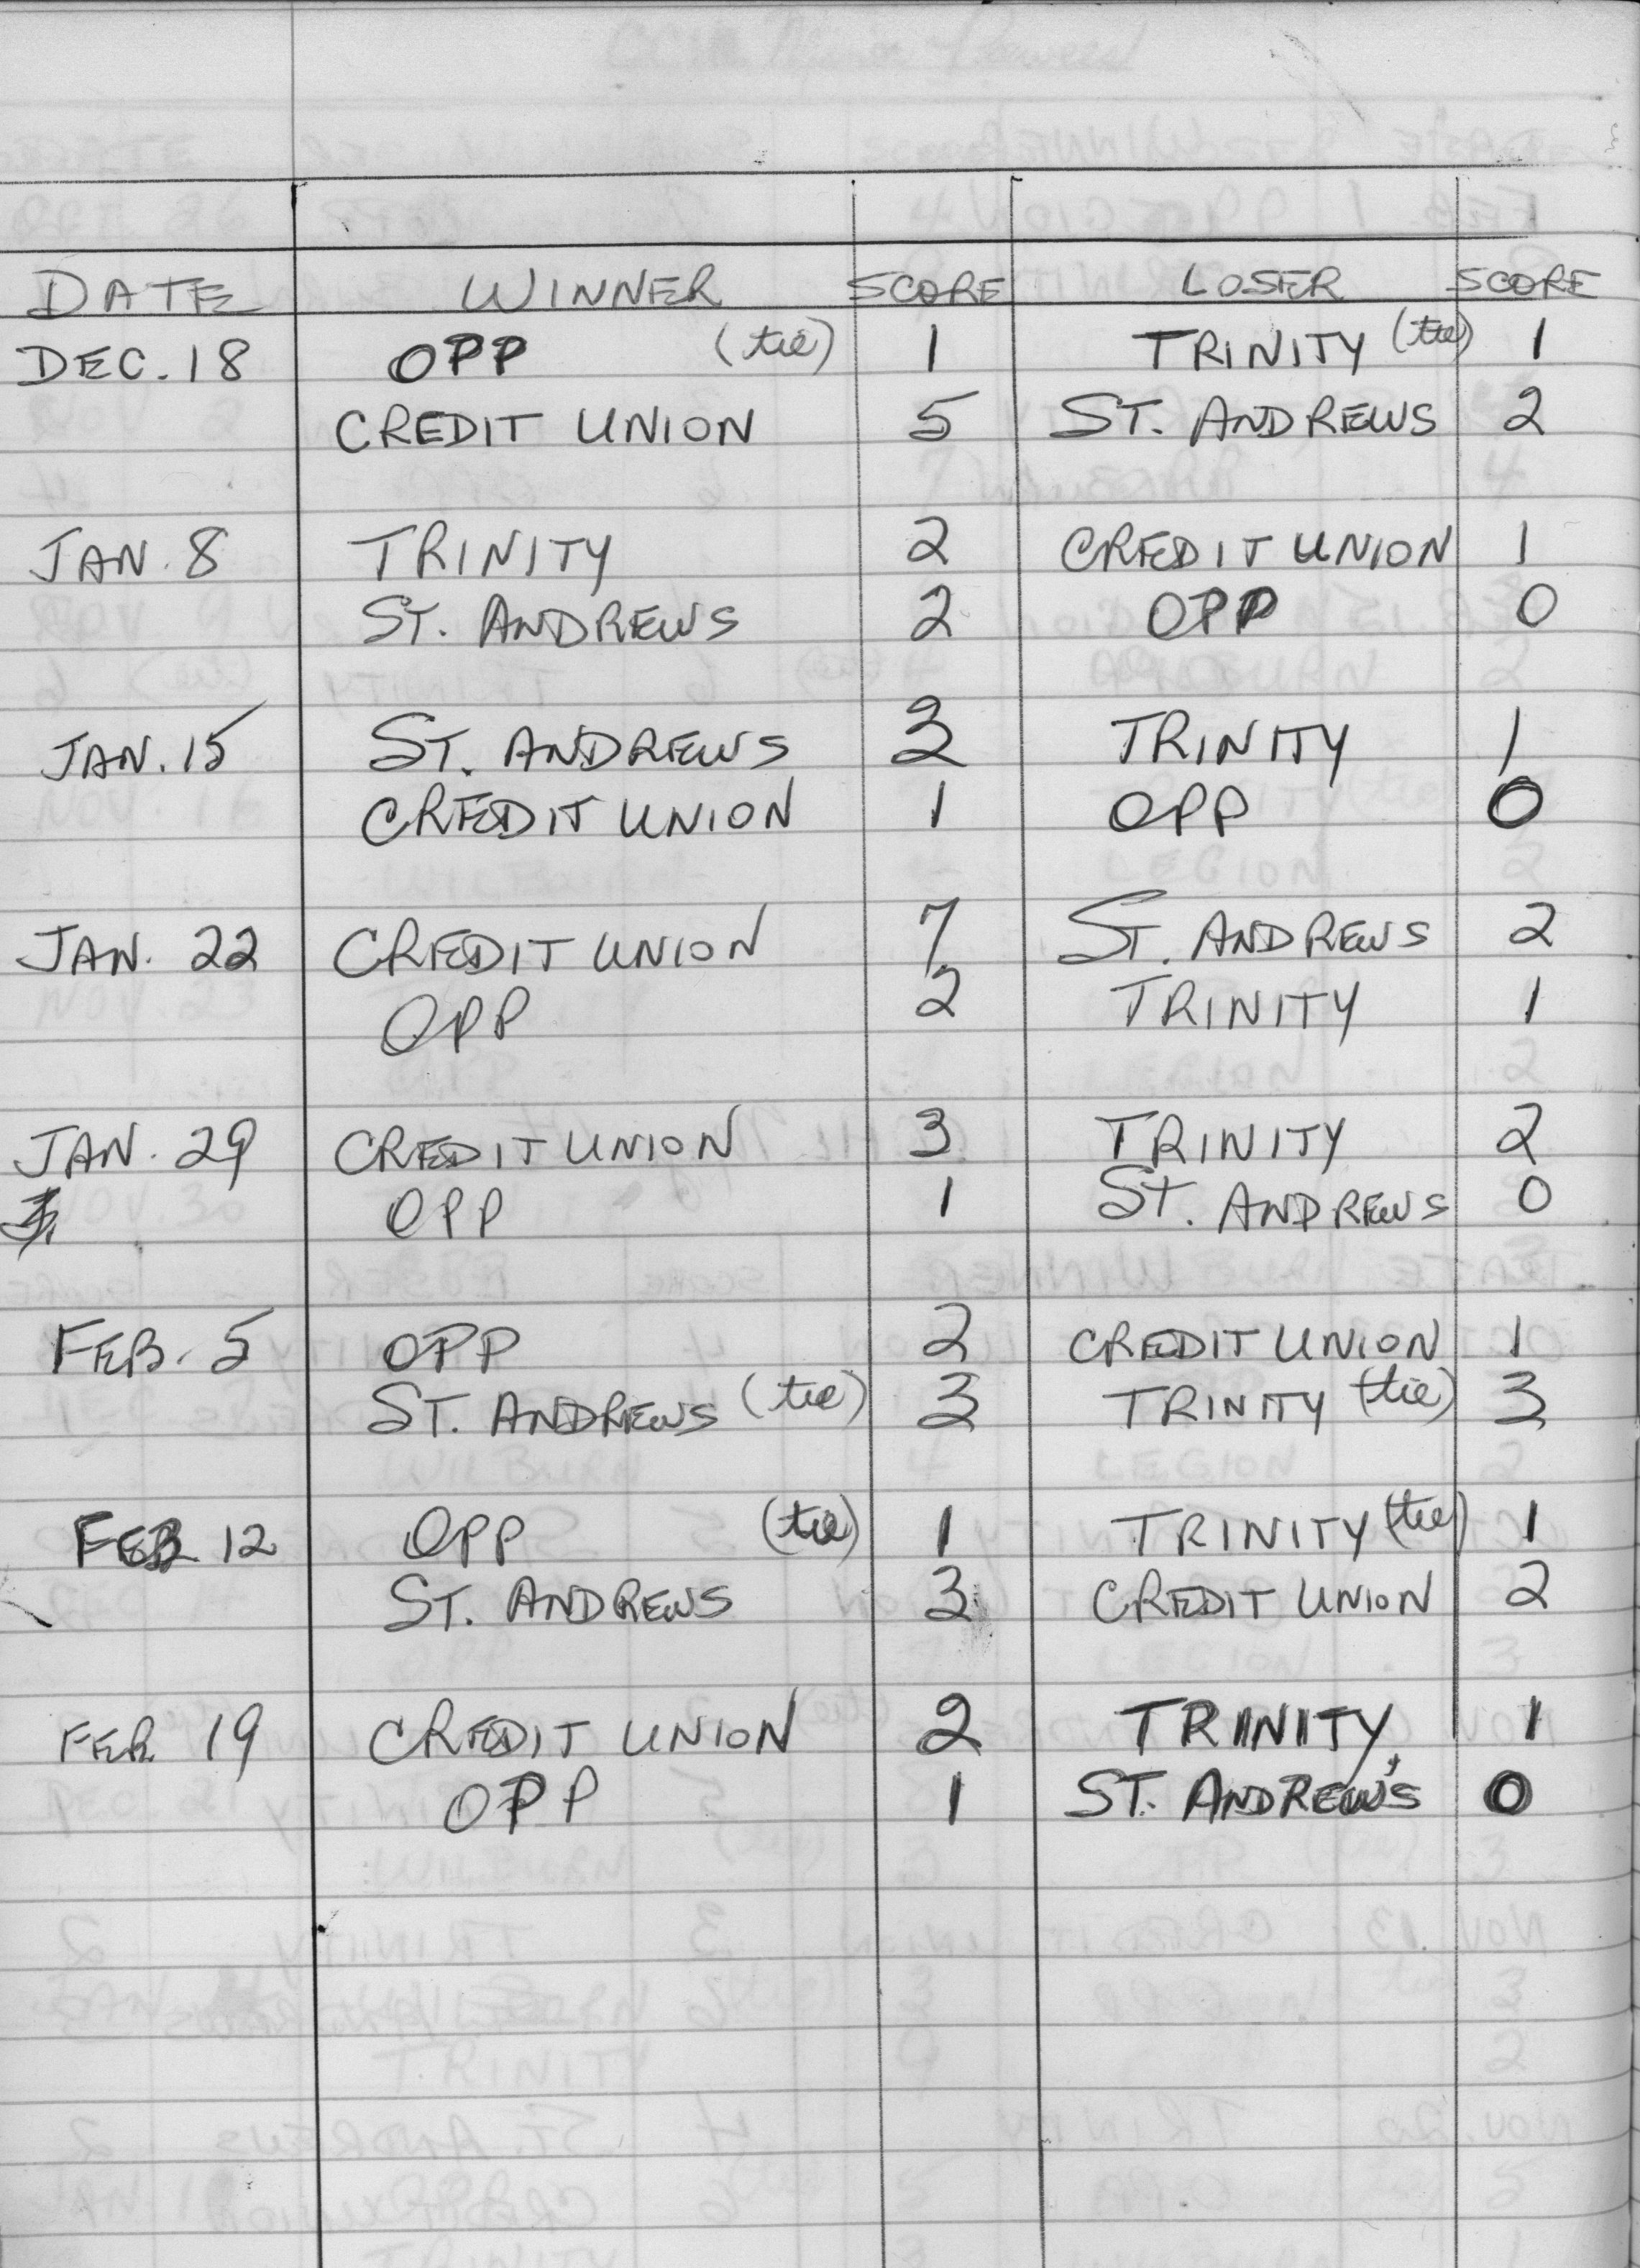 DATE WINNER SCORE LOSER SCORE
DEC. 18 OPP (tie) 1 TRINITY (tie) 1
CREDIT UNION 5 ST. ANDREWS 2
JAN. 8 TRINITY 2 CREDIT UNION 1
ST. ANDREWS 2 OPP 0
JAN. 15 ST. ANDREWS 3 TRINITY 1
CREDIT UNION 1 OPP 0
JAN. 22 CREDIT UNION 7 ST. ANDREWS 2
OPP 2 TRINITY 1
JAN. 29 CREDIT UNION 3 TRINITY 2
OPP 1 ST. ANDREWS 0
FEB. 5 OPP 2 CREDIT UNION 1
ST. ANDREWS (tie) 3 TRINITY (tie) 3
FEB 12 OPP (tie) 1 TRINITY (tie) 1
ST. ANDREWS 3 CREDIT UNION 2
FEB. 19 CREDIT UNION 2 TRINITY 1
OPP 1 ST. ANDREW'S 0